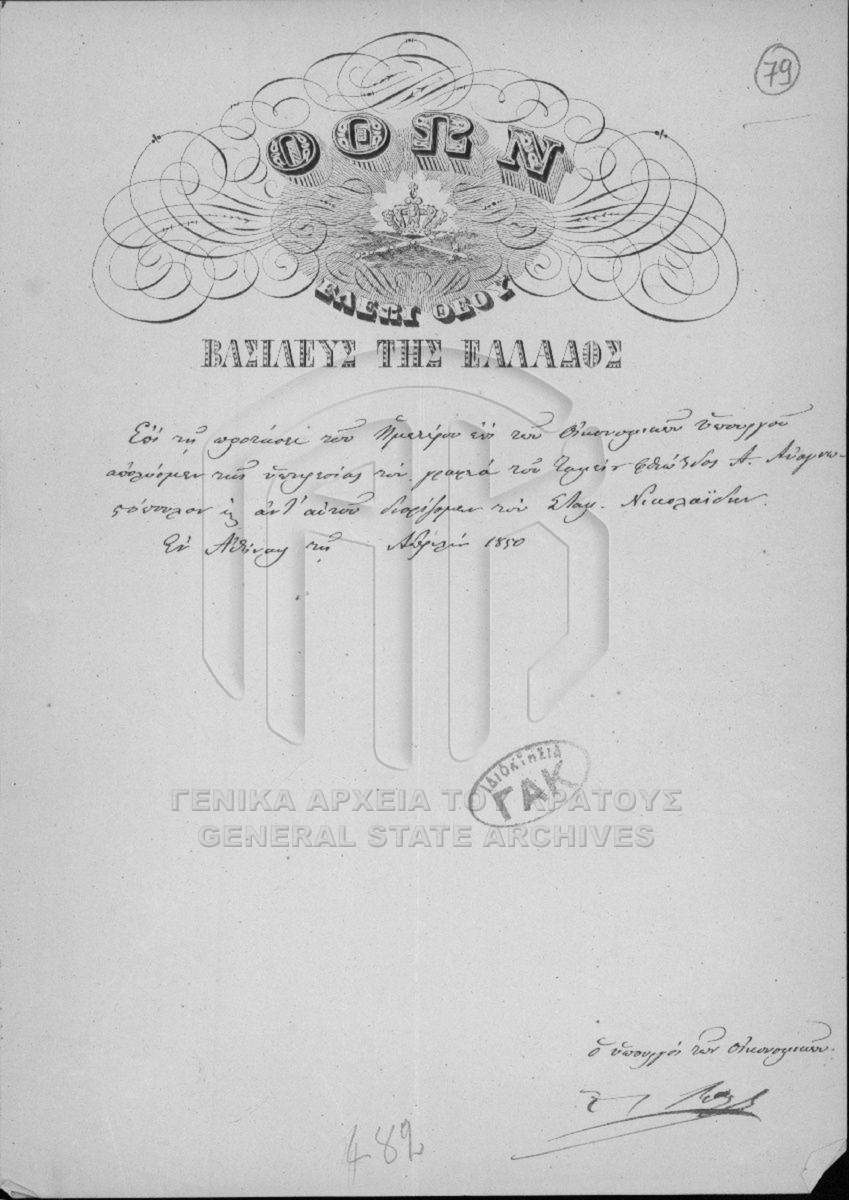 79
ΟΘΩΝ
ΕΛΕΩι ΘΕΟΥ
ΒΑΣΙΛΕΥΣ ΤΗΣ ΕΛΛΑΔΟΣ
Ἐπὶ τῇ προτάσει τοῦ Ἡμετέρου ἐπὶ τῶν Οἰκονομικῶν Ὑπουργοῦ
ἀπολύομεν τῆς ὑπηρεσίας τὸν γραφέα τοῦ Ταμείου Φθιώτιδος Α. Ἀναγνω-
στόπουλον καὶ ἀντ' αὐτοῦ διορίζομεν τὸν Σταμ. Νικολαΐδην.
Ἐν Ἀθήναις τῇ Ἀπριλίου 1850
ΙΔΙΟΚΤΗΣΙΑ
ΓΑΚ
ΓΕΝΙΚΑ ΑΡΧΕΙΑ ΤΟΥ ΚΡΑΤΟΥΣ
GENERAL STATE ARCHIVES
ὁ ὑπουργὸς τῶν Οἰκονομικῶν.
482